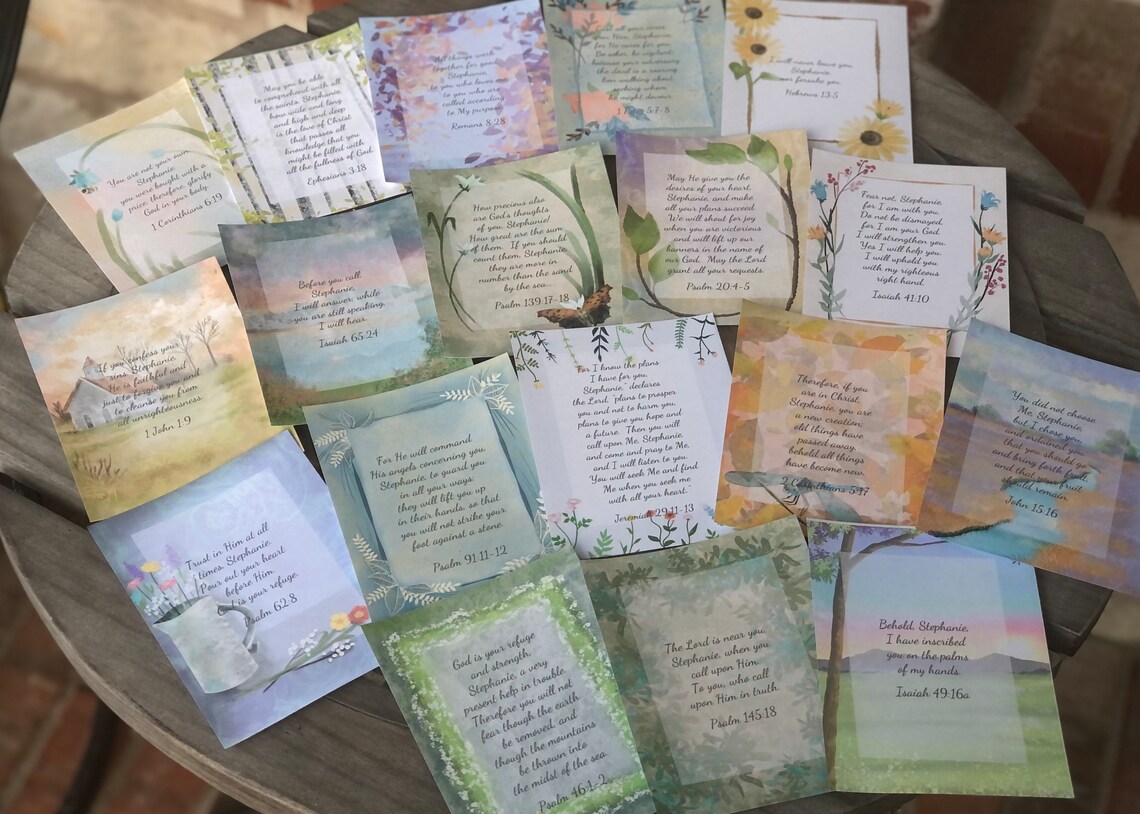 You are not your own,
Stephanie,
you were bought with a
price, therefore, glorify
God in your body.
1 Corinthians 6:19
May you be able
to comprehend with all
the saints, Stephanie,
how wide and long
and high and deep
is the love of Christ
that passes all
knowledge that you
might be filled with
all the fullness of God.
Ephesians 3:18
All things work
together for good,
Stephanie,
to you who love me
who are
called according
to My purpose.
Romans 8:28
all your cares
on Him, Stephanie,
for He cares for you.
Be sober, be vigilant,
because your adversary
the devil is a roaring
lion walking about
seeking whom
he might devour.
5:7-8
I will never leave you
Stephanie
nor forsake you.
Hebrews 13:5
How precious also
are God's thoughts
of you, Stephanie!
How great are the sum
of them. If you should
count them, Stephanie,
they are more in
number than the sand
by the sea...
Psalm 139:17-18
May He give you the
desires of your heart,
Stephanie, and make
all your plans succeed.
We will shout for joy
when you are victorious
and will lift up our
banners in the name of
our God. May the Lord
grant all your requests.
Psalm 20:4-5
Fear not, Stephanie,
for I am with you.
Do not be dismayed,
for I am your God.
I will strengthen you.
Yes I will help you.
I will uphold you
with my righteous
right hand.
Isaiah 41:10
Before you call,
Stephanie,
I will answer, while
you are still speaking,
I will hear.
Isaiah 65:24
If you confess your
sins, Stephanie,
He is faithful and
just to forgive you and
to cleanse you from
all unrighteousness.
1 John 1:9
For He will command
His angels concerning you,
Stephanie, to guard you
in all your ways;
they will lift you up
in their hands, so that
you will not strike your
foot against a stone.
Psalm 91:11-12
For I know the plans
I have for you,
Stephanie," declares
the Lord, "plans to prosper
you and not to harm you,
plans to give you hope and
a future. Then you will
call upon Me, Stephanie,
and come and pray to Me,
and I will listen to you.
You will seek Me and find
Me when you seek me
with all your heart."
Jeremiah 29:11-13
Therefore, if you
are in Christ,
Stephanie, you are
a new creation;
old things have
passed away;
behold all things
have become new.
2 Corinthians 5:17
You did not choose
Me, Stephanie,
but I chose you,
and ordained you
that you should go
and bring forth fruit,
and that your fruit
should remain.
John 15:16
Trust in Him at all
times, Stephanie.
Pour out your heart
before Him.
God is your refuge.
Psalm 62:8
God is your refuge
and strength,
Stephanie, a very
present help in trouble.
Therefore you will not
fear though the earth
be removed, and
though the mountains
be thrown into
the midst of the sea.
Psalm 46:1-2
The Lord is near you,
Stephanie, when you
call upon Him.
To you, who call
upon Him in truth.
Psalm 145:18
Behold, Stephanie,
I have inscribed
you on the palms
of my hands.
Isaiah 49:16a